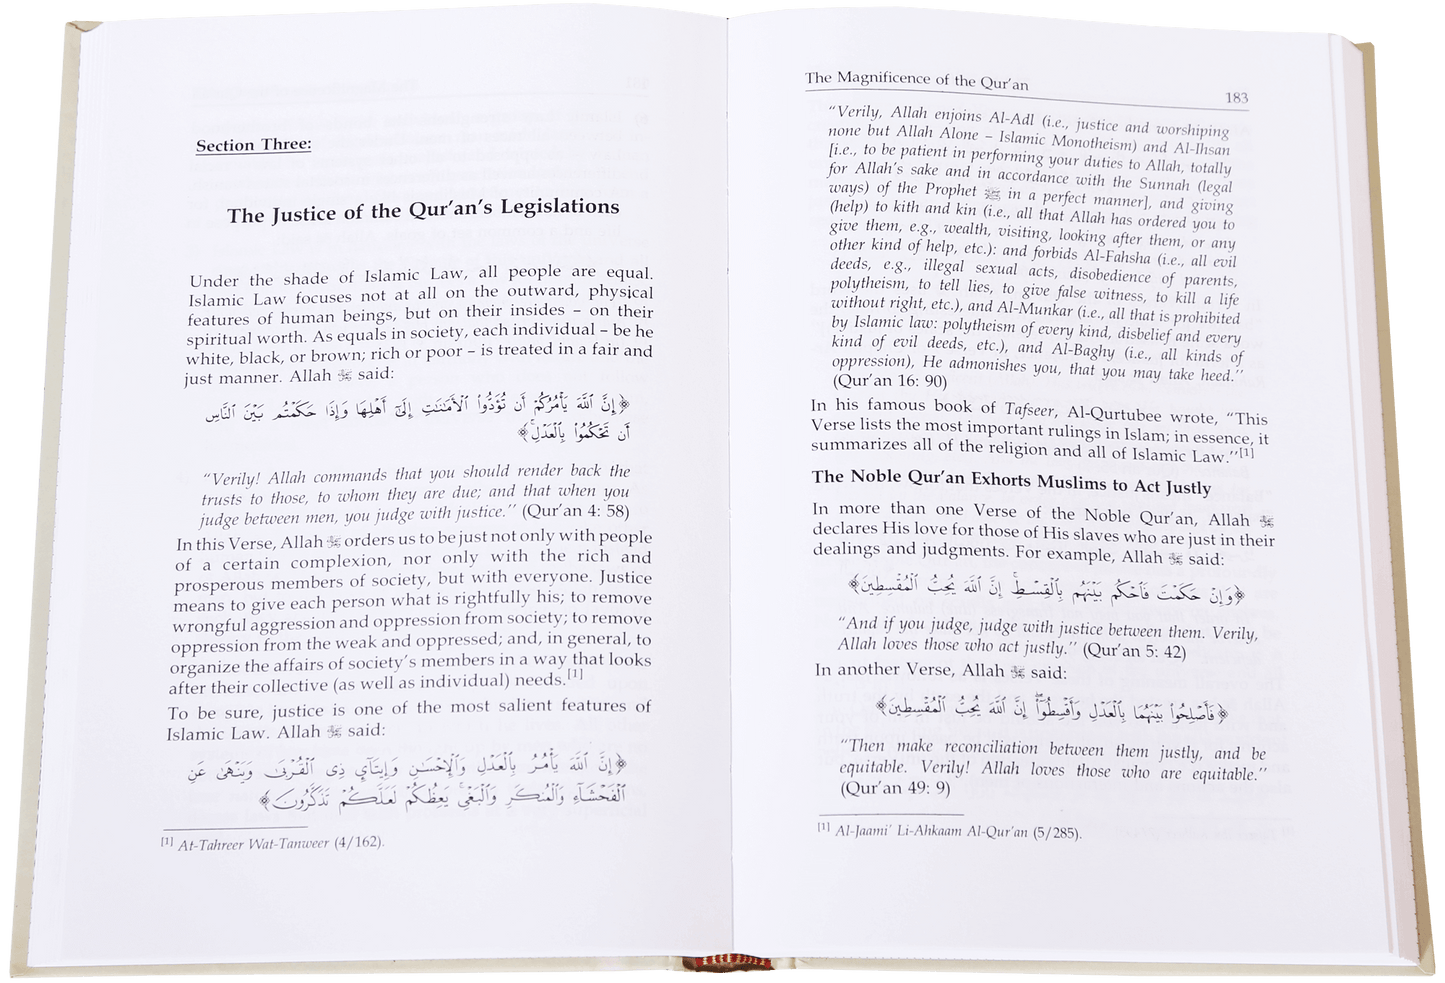 Section Three:
The Justice of the Qur'an's Legislations
Under the shade of Islamic Law, all people are equal.
Islamic Law focuses not at all on the outward, physical
features of human beings, but on their insides – on their
spiritual worth. As equals in society, each individual – be he
white, black, or brown; rich or poor – is treated in a fair and
just manner. Allah ﷻ said:
﴿إِنَّ ٱللَّهَ يَأْمُرُكُمْ أَن تُؤَدُّوا۟ ٱلْأَمَـٰنَـٰتِ إِلَىٰٓ أَهْلِهَا وَإِذَا حَكَمْتُم بَيْنَ ٱلنَّاسِ
أَن تَحْكُمُوا۟ بِٱلْعَدْلِ ۚ﴾
"Verily! Allah commands that you should render back the
trusts to those, to whom they are due; and that when you
judge between men, you judge with justice." (Qur'an 4: 58)
In this Verse, Allah ﷻ orders us to be just not only with people
of a certain complexion, nor only with the rich and
prosperous members of society, but with everyone. Justice
means to give each person what is rightfully his; to remove
wrongful aggression and oppression from society; to remove
oppression from the weak and oppressed; and, in general, to
organize the affairs of society's members in a way that looks
after their collective (as well as individual) needs.[1]
To be sure, justice is one of the most salient features of
Islamic Law. Allah ﷻ said:
﴿إِنَّ ٱللَّهَ يَأْمُرُ بِٱلْعَدْلِ وَٱلْإِحْسَـٰنِ وَإِيتَآئِ ذِى ٱلْقُرْبَىٰ وَيَنْهَىٰ عَنِ
ٱلْفَحْشَآءِ وَٱلْمُنكَرِ وَٱلْبَغْىِ ۚ يَعِظُكُمْ لَعَلَّكُمْ تَذَكَّرُونَ﴾
[1] At-Tahreer Wat-Tanweer (4/162).
The Magnificence of the Qur'an 183
"Verily, Allah enjoins Al-Adl (i.e., justice and worshiping
none but Allah Alone – Islamic Monotheism) and Al-Ihsan
[i.e., to be patient in performing your duties to Allah, totally
for Allah's sake and in accordance with the Sunnah (legal
ways) of the Prophet ﷺ in a perfect manner], and giving
(help) to kith and kin (i.e., all that Allah has ordered you to
give them, e.g., wealth, visiting, looking after them, or any
other kind of help, etc.): and forbids Al-Fahsha (i.e., all evil
deeds, e.g., illegal sexual acts, disobedience of parents,
polytheism, to tell lies, to give false witness, to kill a life
without right, etc.), and Al-Munkar (i.e., all that is prohibited
by Islamic law: polytheism of every kind, disbelief and every
kind of evil deeds, etc.), and Al-Baghy (i.e., all kinds of
oppression), He admonishes you, that you may take heed."
(Qur'an 16: 90)
In his famous book of Tafseer, Al-Qurtubee wrote, "This
Verse lists the most important rulings in Islam; in essence, it
summarizes all of the religion and all of Islamic Law."[1]
The Noble Qur'an Exhorts Muslims to Act Justly
In more than one Verse of the Noble Qur'an, Allah ﷻ
declares His love for those of His slaves who are just in their
dealings and judgments. For example, Allah ﷻ said:
﴿وَإِنْ حَكَمْتَ فَٱحْكُم بَيْنَهُم بِٱلْقِسْطِ ۚ إِنَّ ٱللَّهَ يُحِبُّ ٱلْمُقْسِطِينَ﴾
"And if you judge, judge with justice between them. Verily,
Allah loves those who act justly." (Qur'an 5: 42)
In another Verse, Allah ﷻ said:
﴿فَأَصْلِحُوا۟ بَيْنَهُمَا بِٱلْعَدْلِ وَأَقْسِطُوٓا۟ ۖ إِنَّ ٱللَّهَ يُحِبُّ ٱلْمُقْسِطِينَ﴾
"Then make reconciliation between them justly, and be
equitable. Verily! Allah loves those who are equitable."
(Qur'an 49: 9)
[1] Al-Jaami' Li-Ahkaam Al-Qur'an (5/285).